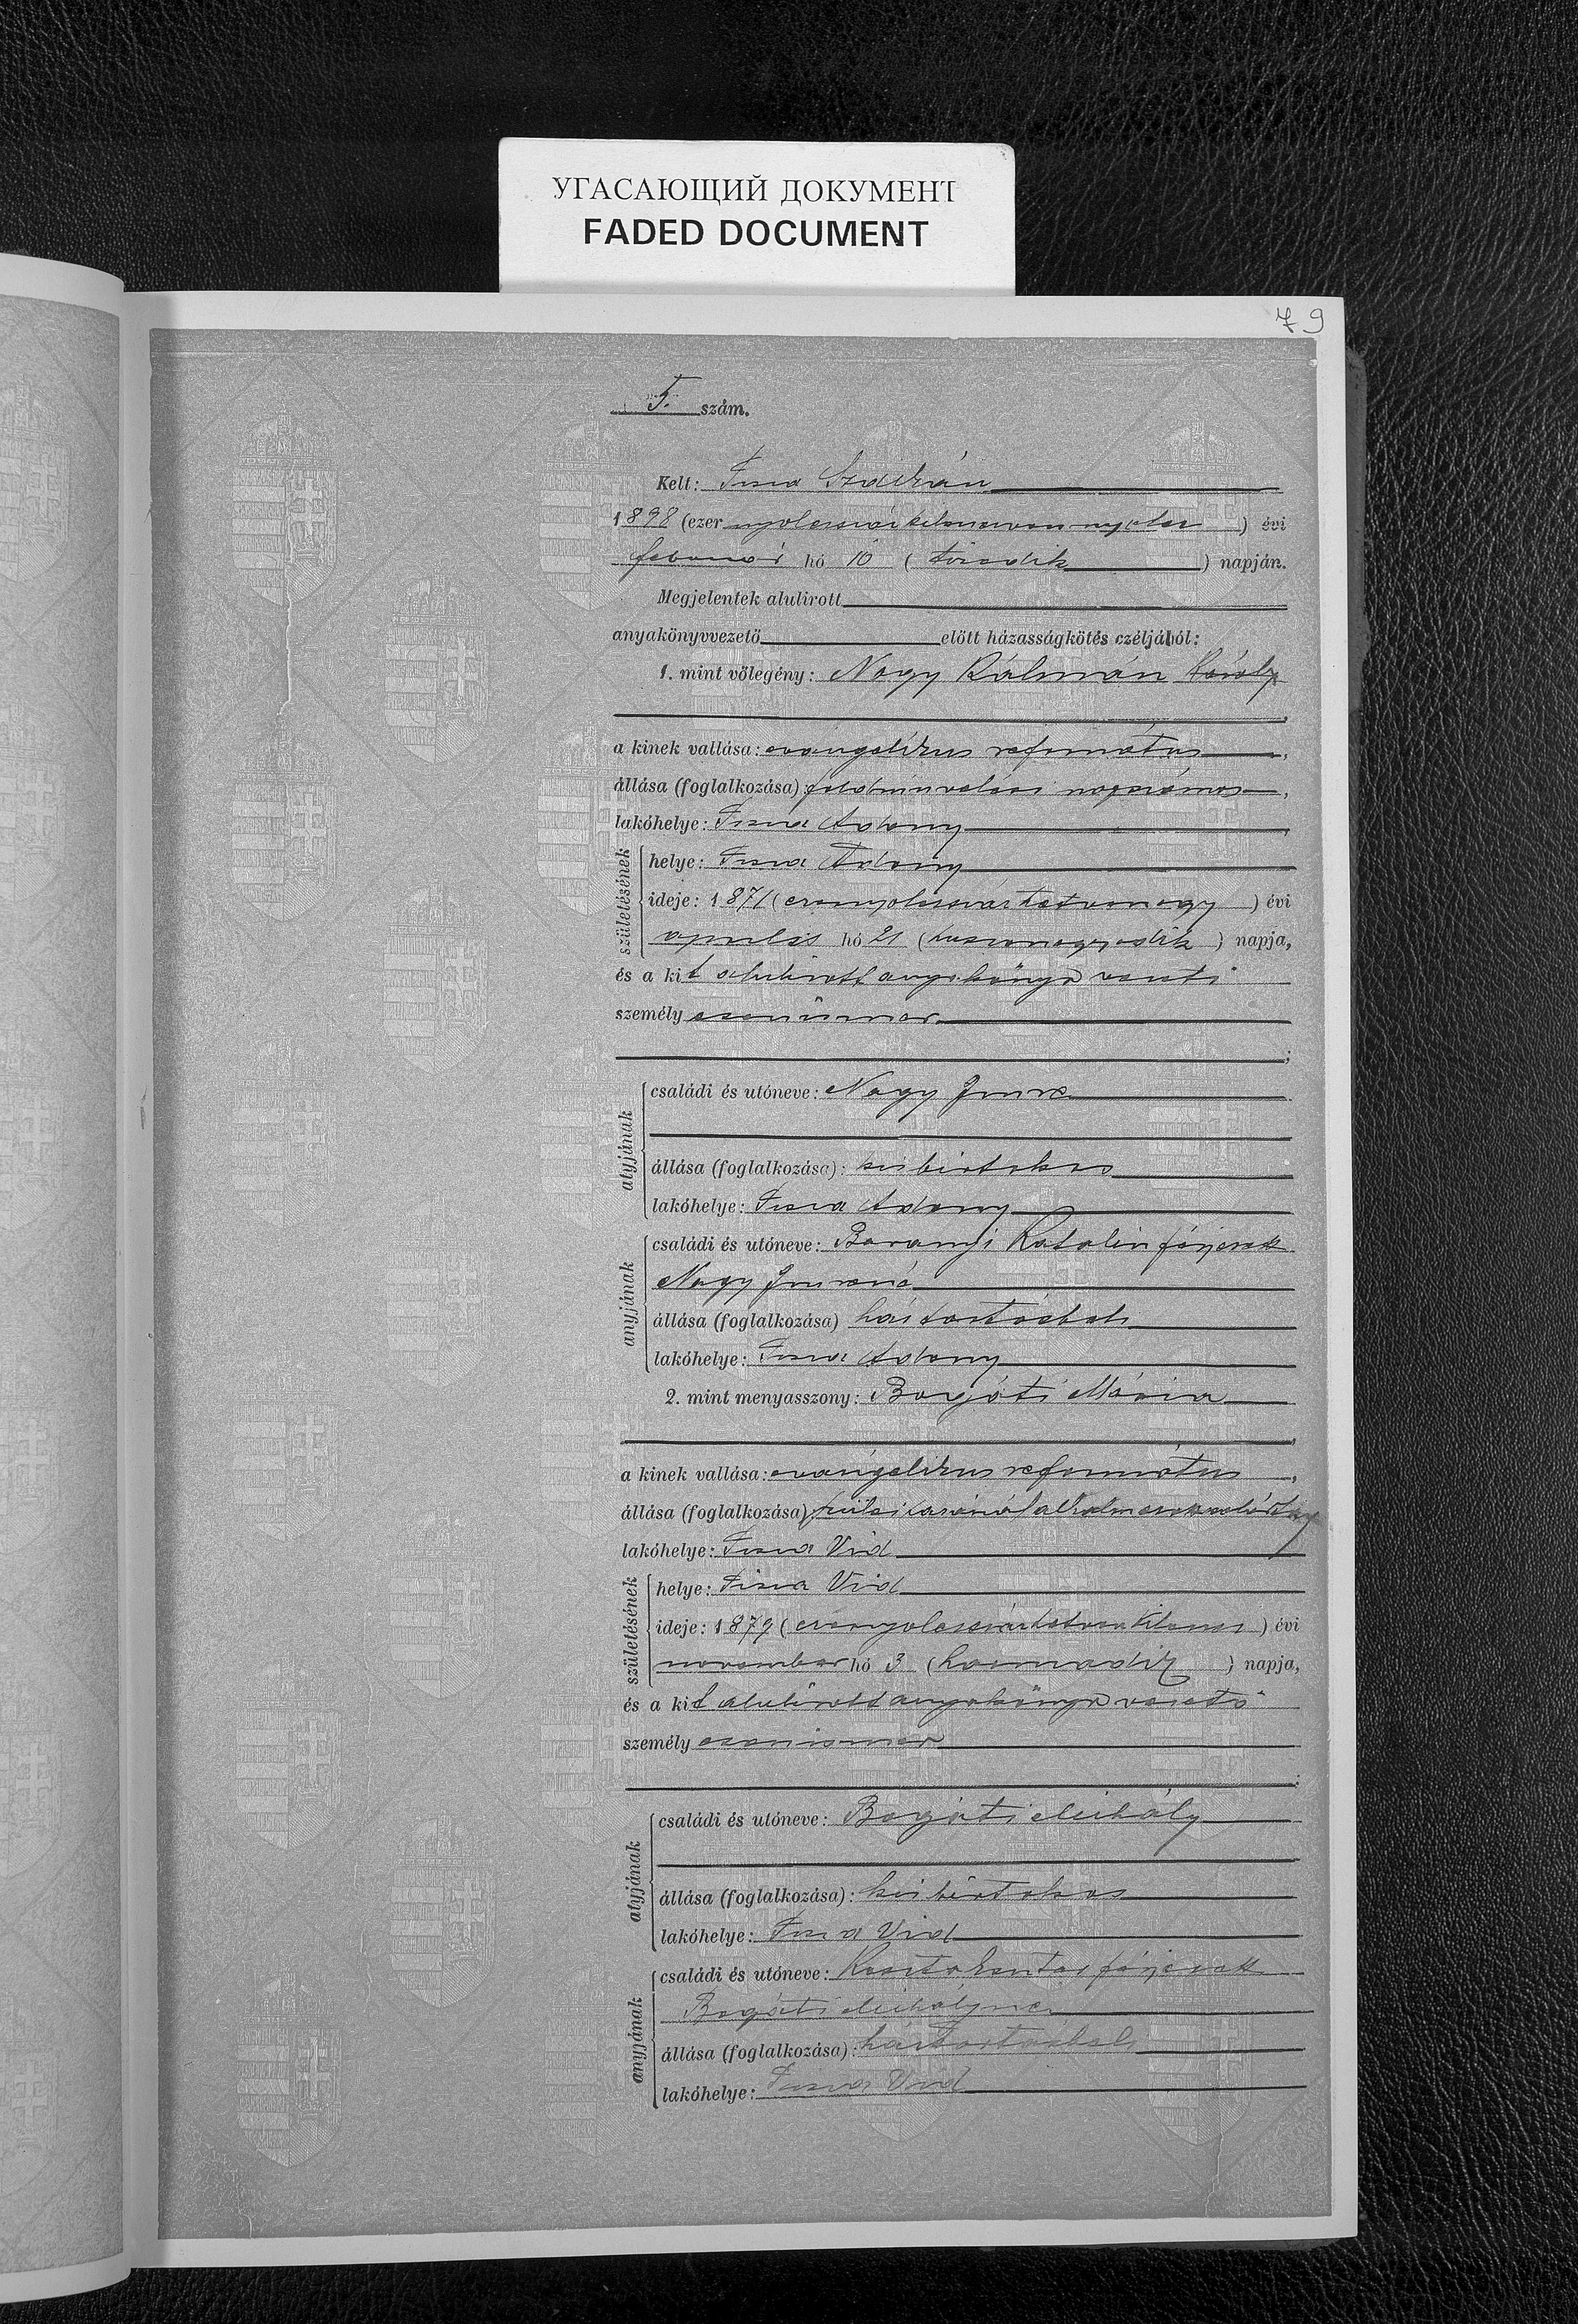 УГАСАЮЩИЙ ДОКУМЕНТ
FADED DOCUMENT
79
5. szám.
Kelt: Tisza
1898 (ezer nyolcszázkilencvennyolcz) évi
február hó 10 (tizedik) napján.
Megjelentek alulirott
anyakönyvvezető előtt házasságkötés czéljából:
1. mint vőlegény: Nagy Kálmán Károly
a kinek vallása: evangelikus református,
állása (foglalkozása): földmivelési napszámos,
lakóhelye: Tisza Adony
születésének
helye: Tisza Adony
ideje: 1871 (ezernyolcszázhetvenegy) évi
aprilis hó 21 (huszonegyedik) napja,
és a kit alulirott anyakönyv vezető
személyesen ismer
atyjának
családi és utóneve: Nagy Imre
állása (foglalkozása): kisbirtokos
lakóhelye: Tisza Adony
anyjának
családi és utóneve: Baranyi Katalin férjezett
Nagy Imréné
állása (foglalkozása) háztartásbeli
lakóhelye: Tisza Adony
2. mint menyasszony: Bogáti Mária
a kinek vallása: evangelikus református,
állása (foglalkozása) szülei házánál alkalmazott
lakóhelye: Tisza Vid
születésének
helye: Tisza Vid
ideje: 1879 (ezernyolcszázhetvenkilencz) évi
november hó 3 (harmadik) napja,
és a kit alulirott anyakönyv vezető
személyesen ismer
atyjának
családi és utóneve: Bogáti Mihály
állása (foglalkozása): kisbirtokos
lakóhelye: Tisza Vid
anyjának
családi és utóneve: férjezett
Bogáti Mihályné
állása (foglalkozása): háztartásbeli
lakóhelye: Tisza Vid